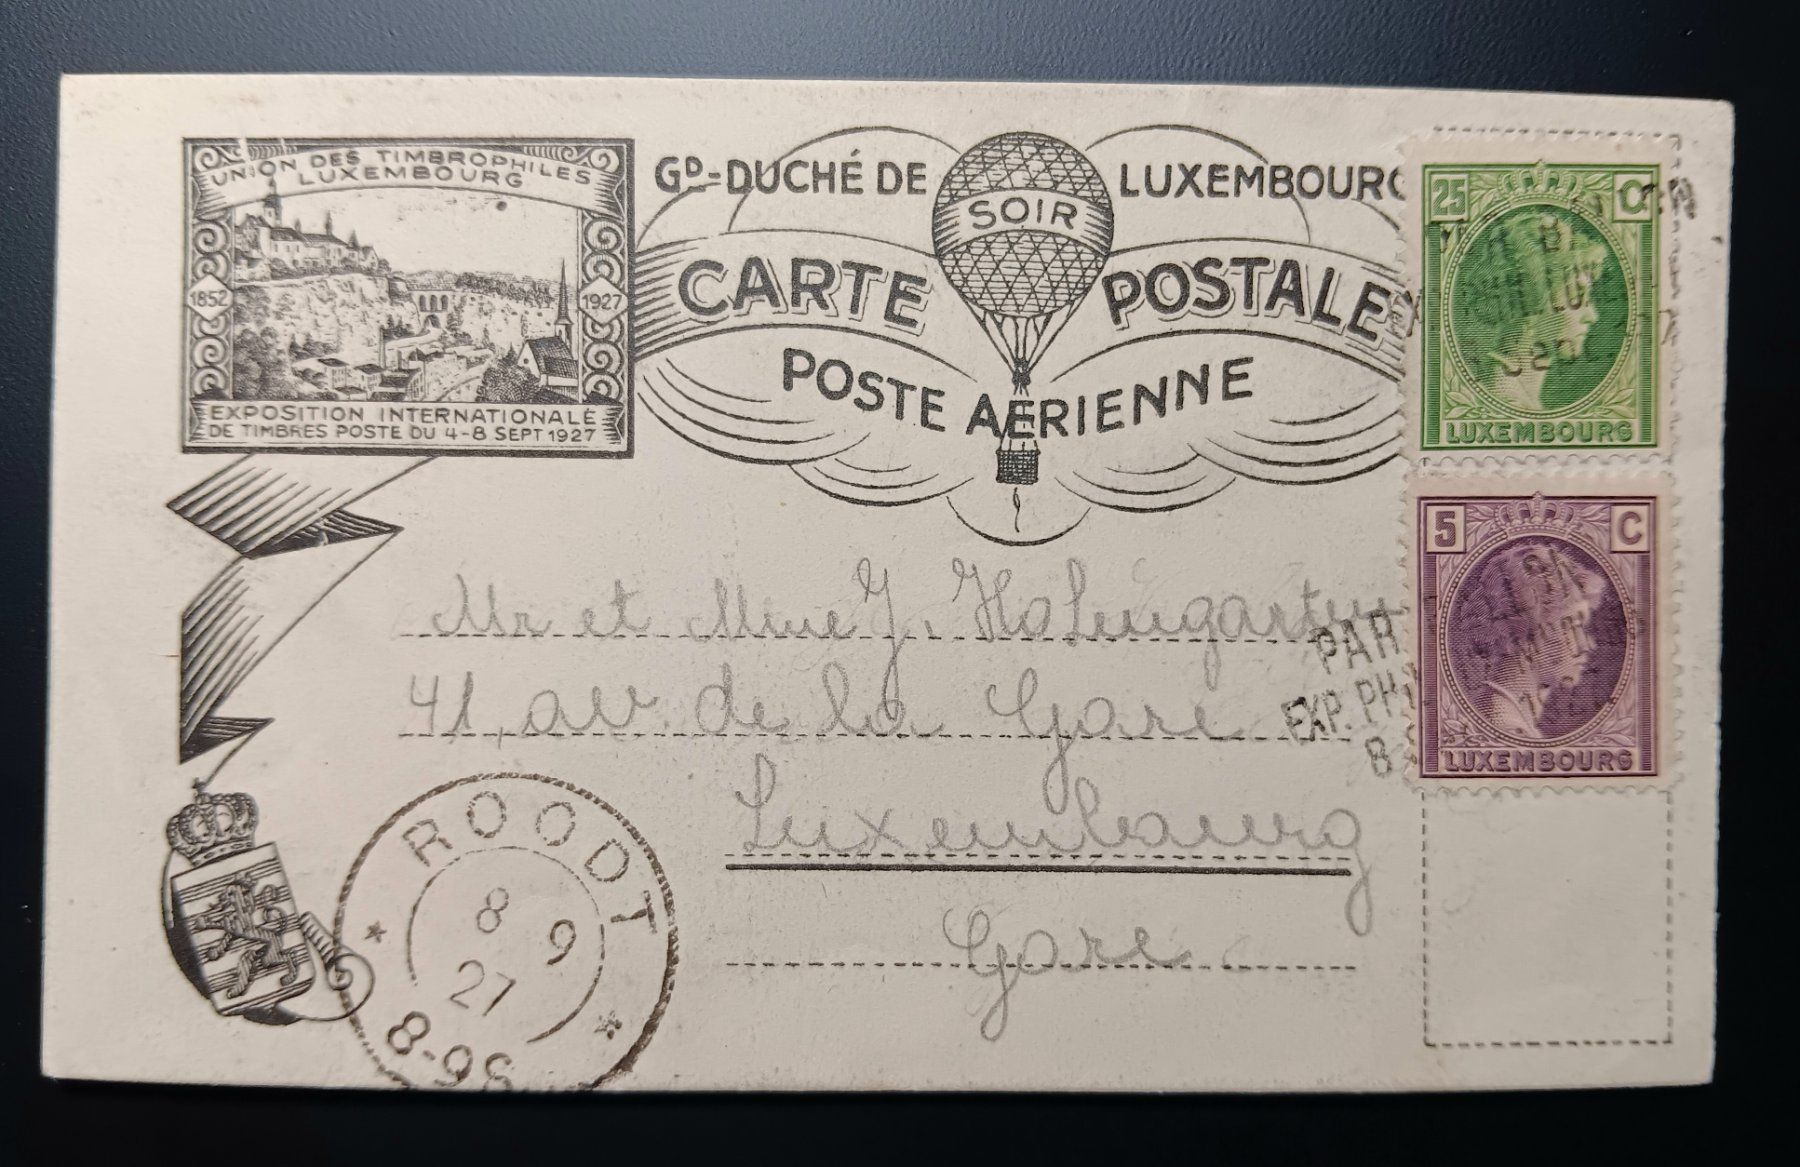 UNION DES TIMBROPHILES
LUXEMBOURG
1852
1927
EXPOSITION INTERNATIONALE
DE TIMBRES POSTE DU 4-8 SEPT 1927
GD-DUCHÉ DE LUXEMBOURG
SOIR
CARTE POSTALE
POSTE AÉRIENNE
25 C
LUXEMBOURG
5 C
LUXEMBOURG
PAR
EXP. PH
8-
Mr et Mme J.
41, av. de la Gare
Luxembourg
Gare
ROODT
8 9
27
8-9S